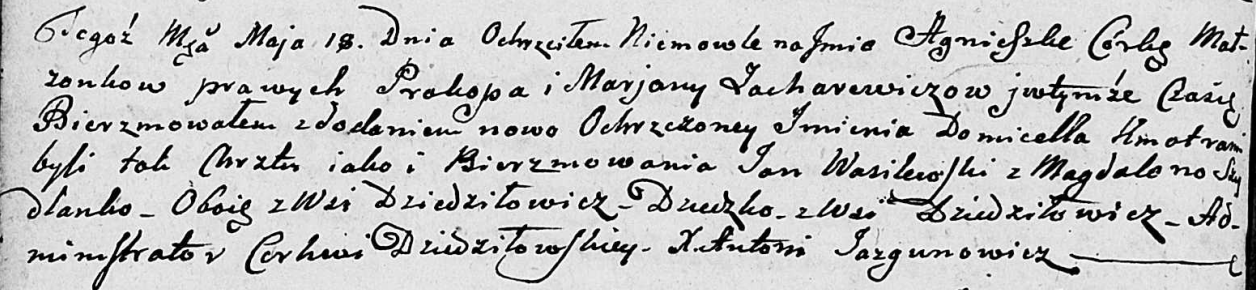 Tegoż Mca Maja 18. Dnia Ochrzciłem Niemowle na Jmie Agnieszke Córkę Mał-
żonkow prawych Prokopa i Marjany Zacharewiczow jwtymże Czasię
Bierzmowałem zdodaniem nowo Ochrzczoney Jmienia Domicella Kmotrami
byli tak Chrztu iako i Bierzmowania Jan Wasilewski z Magdaleno Szy
dlanko - Oboie z Wsi Dziedziłowicz - z Wsi Dziedziłowicz - Ad-
ministrator Cerkwi Dziedziłowskiey - X. Antoni Jazgunowicz